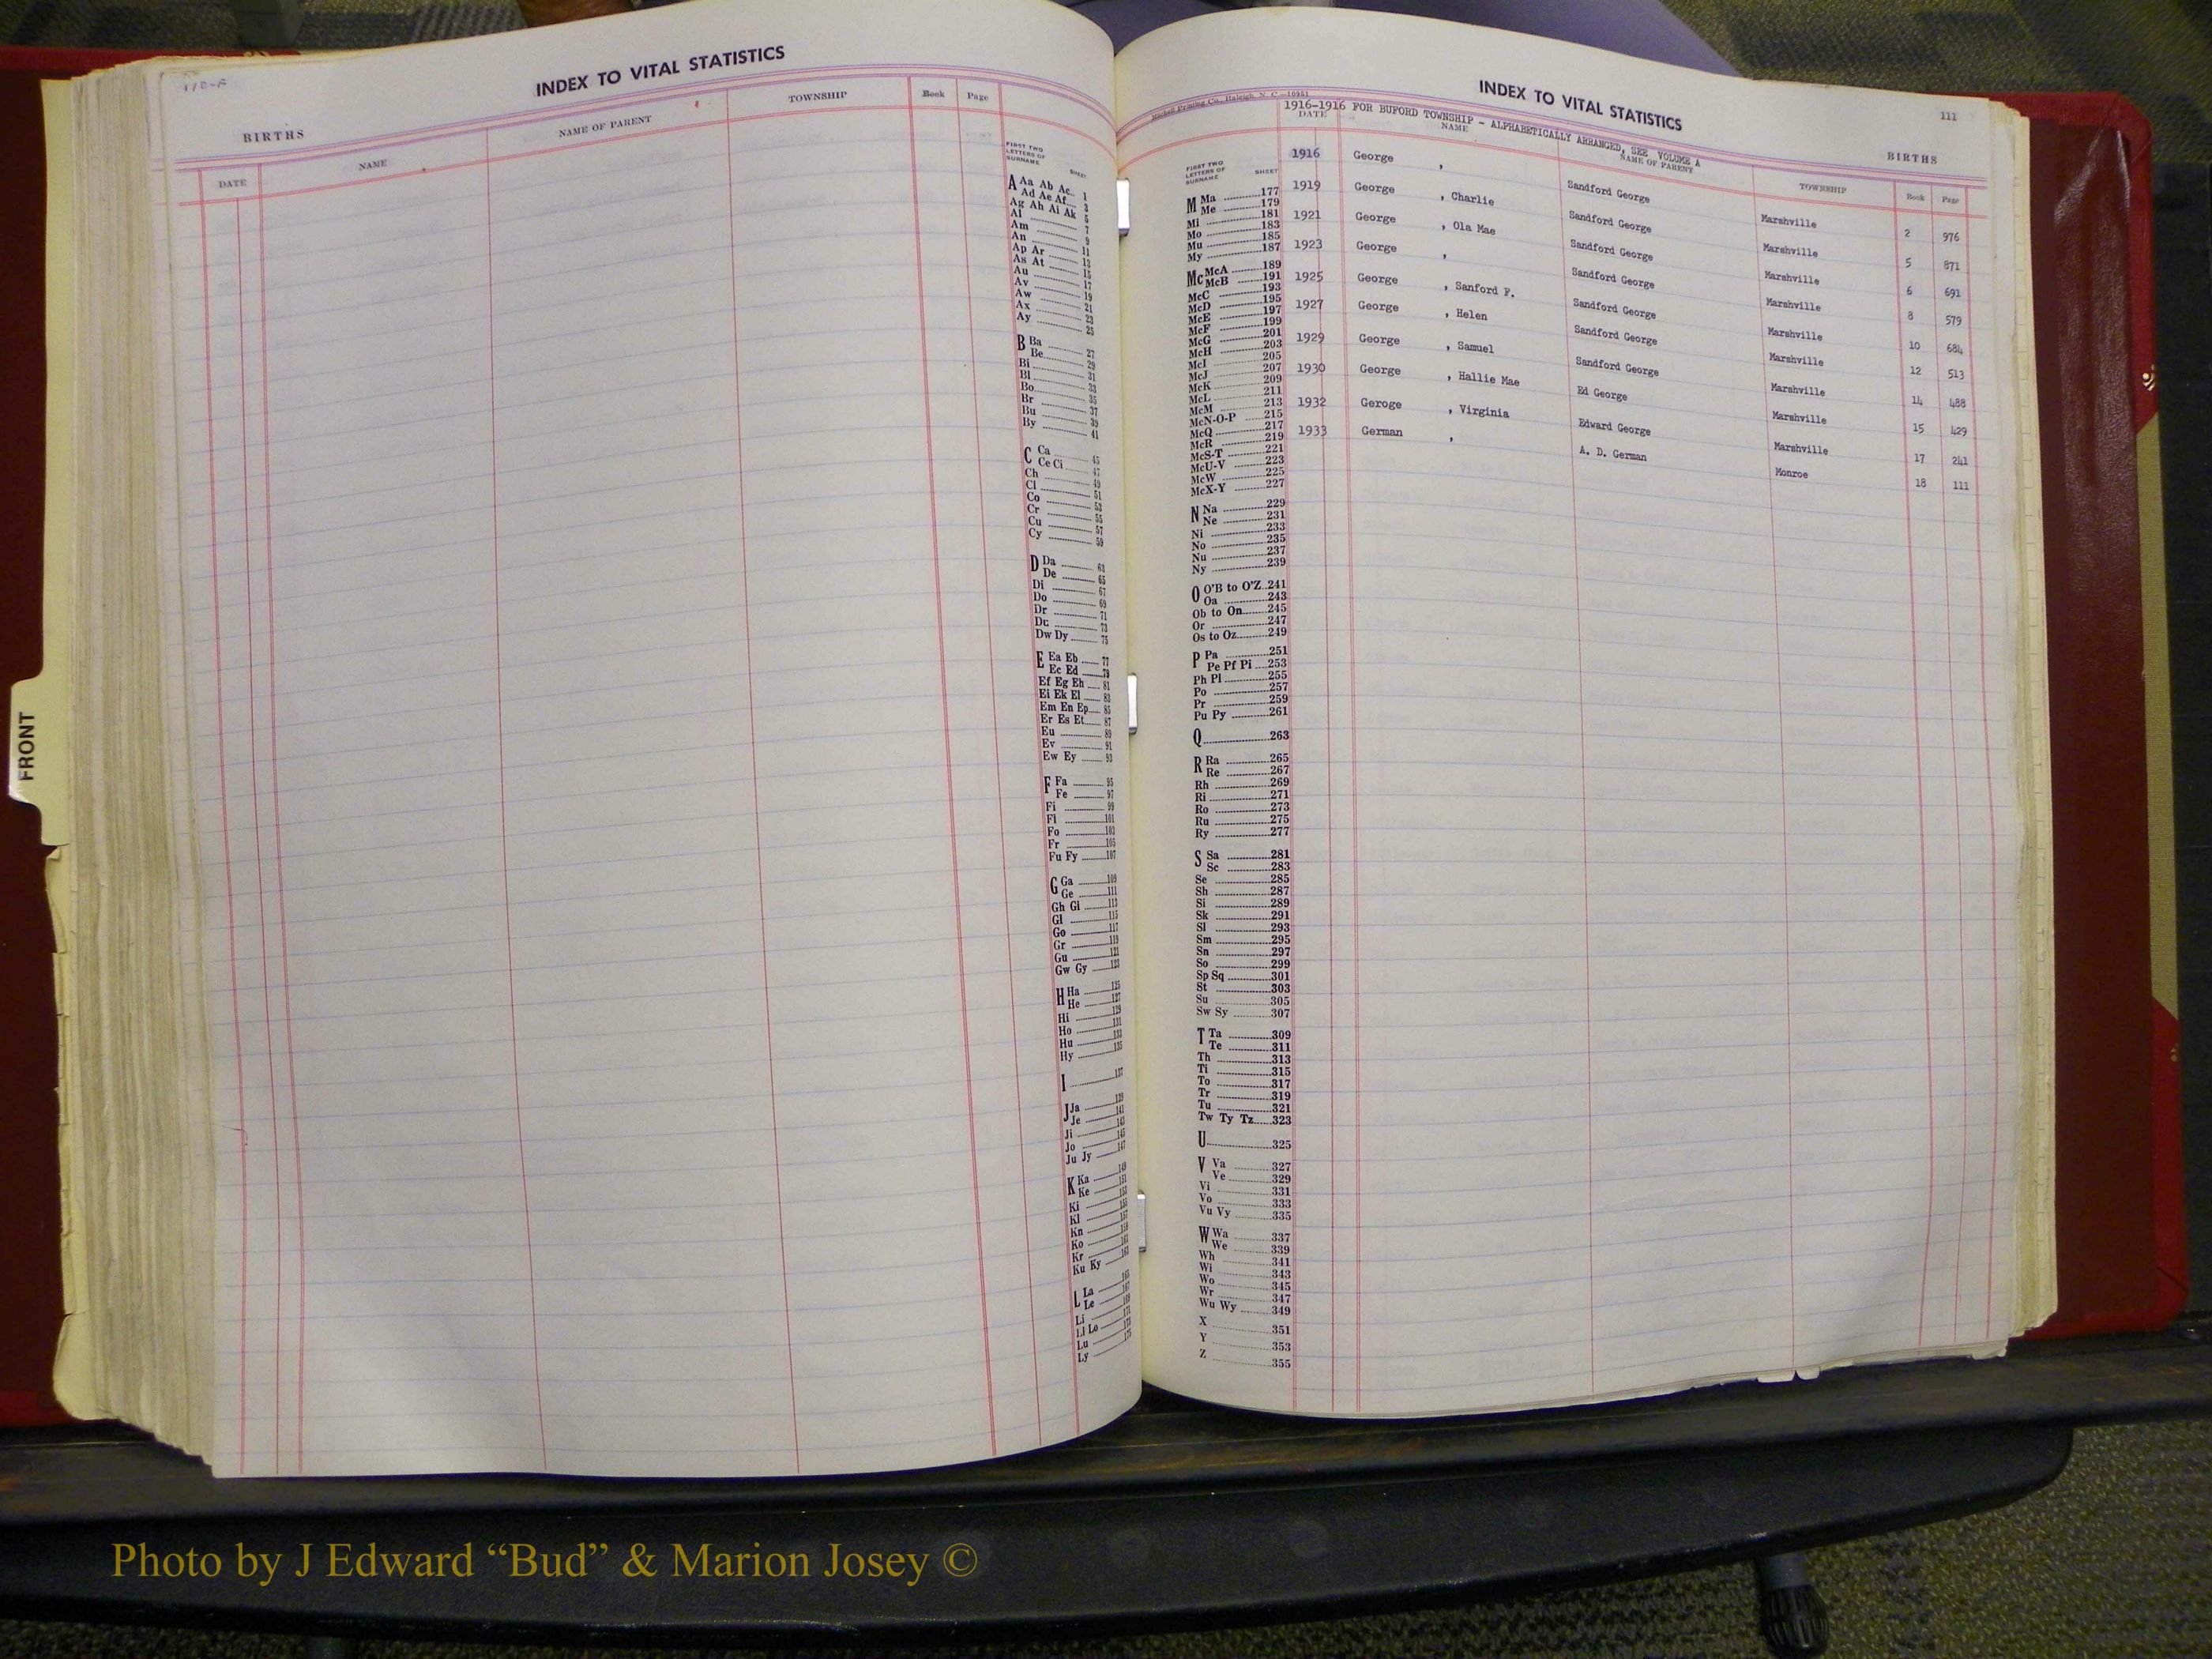 INDEX TO VITAL STATISTICS
BIRTHS
DATE NAME NAME OF PARENT TOWNSHIP Book Page
FIRST TWO LETTERS OF SURNAME SHEET
A Aa Ab Ac 1
Ad Ae Af 3
Ag Ah Ai Ak 5
Al 7
Am 9
An 11
Ap Ar 13
As At 15
Au 17
Av 19
Aw 21
Ax 23
Ay 25
B Ba 27
Be 29
Bi 31
Bl 33
Bo 35
Br 37
Bu 39
By 41
C Ca 45
Ce Ci 47
Ch 49
Cl 51
Co 53
Cr 55
Cu 57
Cy 59
D Da 63
De 65
Di 67
Do 69
Dr 71
Du 73
Dw Dy 75
E Ea Eb 77
Ec Ed 79
Ef Eg Eh 81
Ei Ek El 83
Em En Ep 85
Er Es Et 87
Eu 89
Ev 91
Ew Ey 93
F Fa 95
Fe 97
Fi 99
Fl 101
Fo 103
Fr 105
Fu Fy 107
G Ga 109
Ge 111
Gh Gi 113
Gl 115
Go 117
Gr 119
Gu 121
Gw Gy 123
H Ha 125
He 127
Hi 129
Ho 131
Hu 133
Hy 135
I 137
J Ja 139
Je 141
Ji 143
Jo 145
Ju Jy 147
K Ka 149
Ke 151
Ki 153
Kl 155
Kn 157
Ko 159
Kr 161
Ku Ky 163
L La 165
Le 167
Li 169
Ll Lo 171
Lu 173
Ly 175
FRONT
Mitchell Printing Co., Raleigh, N. C.—10951
INDEX TO VITAL STATISTICS
111
1916-1916 FOR BUFORD TOWNSHIP - ALPHABETICALLY ARRANGED, SEE VOLUME A
BIRTHS
DATE NAME NAME OF PARENT TOWNSHIP Book Page
1916 George , Sandford George Marshville 2 976
1919 George , Charlie Sandford George Marshville 5 871
1921 George , Ola Mae Sandford George Marshville 6 691
1923 George , Sandford George Marshville 8 579
1925 George , Sanford F. Sandford George Marshville 10 684
1927 George , Helen Sandford George Marshville 12 513
1929 George , Samuel Sandford George Marshville 14 488
1930 George , Hallie Mae Ed George Marshville 15 429
1932 Geroge , Virginia Edward George Marshville 17 241
1933 German , A. D. German Monroe 18 111
FIRST TWO LETTERS OF SURNAME SHEET
M Ma 177
Me 179
Mi 181
Mo 183
Mu 185
My 187
Mc McA 189
McB 191
McC 193
McD 195
McE 197
McF 199
McG 201
McH 203
McI 205
McJ 207
McK 209
McL 211
McM 213
McN-O-P 215
McQ 217
McR 219
McS-T 221
McU-V 223
McW 225
McX-Y 227
N Na 229
Ne 231
Ni 233
No 235
Nu 237
Ny 239
O O'B to O'Z 241
Oa 243
Ob to On 245
Or 247
Os to Oz 249
P Pa 251
Pe Pf Pi 253
Ph Pl 255
Po 257
Pr 259
Pu Py 261
Q 263
R Ra 265
Re 267
Rh 269
Ri 271
Ro 273
Ru 275
Ry 277
S Sa 281
Sc 283
Se 285
Sh 287
Si 289
Sk 291
Sl 293
Sm 295
Sn 297
So 299
Sp Sq 301
St 303
Su 305
Sw Sy 307
T Ta 309
Te 311
Th 313
Ti 315
To 317
Tr 319
Tu 321
Tw Ty Tz 323
U 325
V Va 327
Ve 329
Vi 331
Vo 333
Vu Vy 335
W Wa 337
We 339
Wh 341
Wi 343
Wo 345
Wr 347
Wu Wy 349
X 351
Y 353
Z 355
Photo by J Edward “Bud” & Marion Josey ©